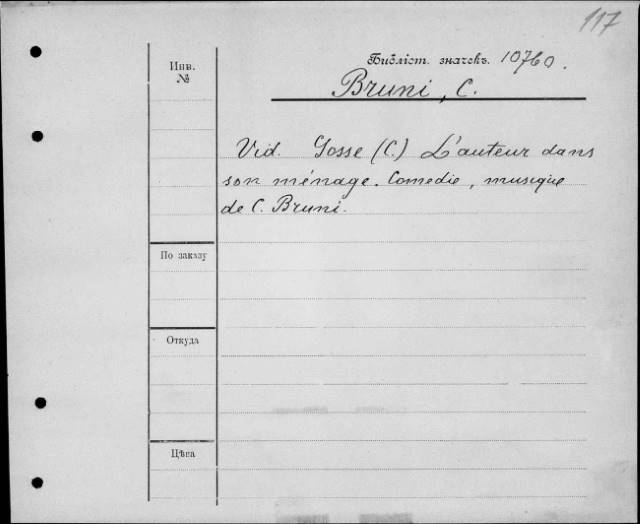 117
Инв.
№
Бібліот. значекъ. 10760.
Bruni, C.
Vid. Gosse (C.) L'auteur dans
son ménage. Comedie, musique
de C. Bruni.
По заказу
Откуда
Цѣна